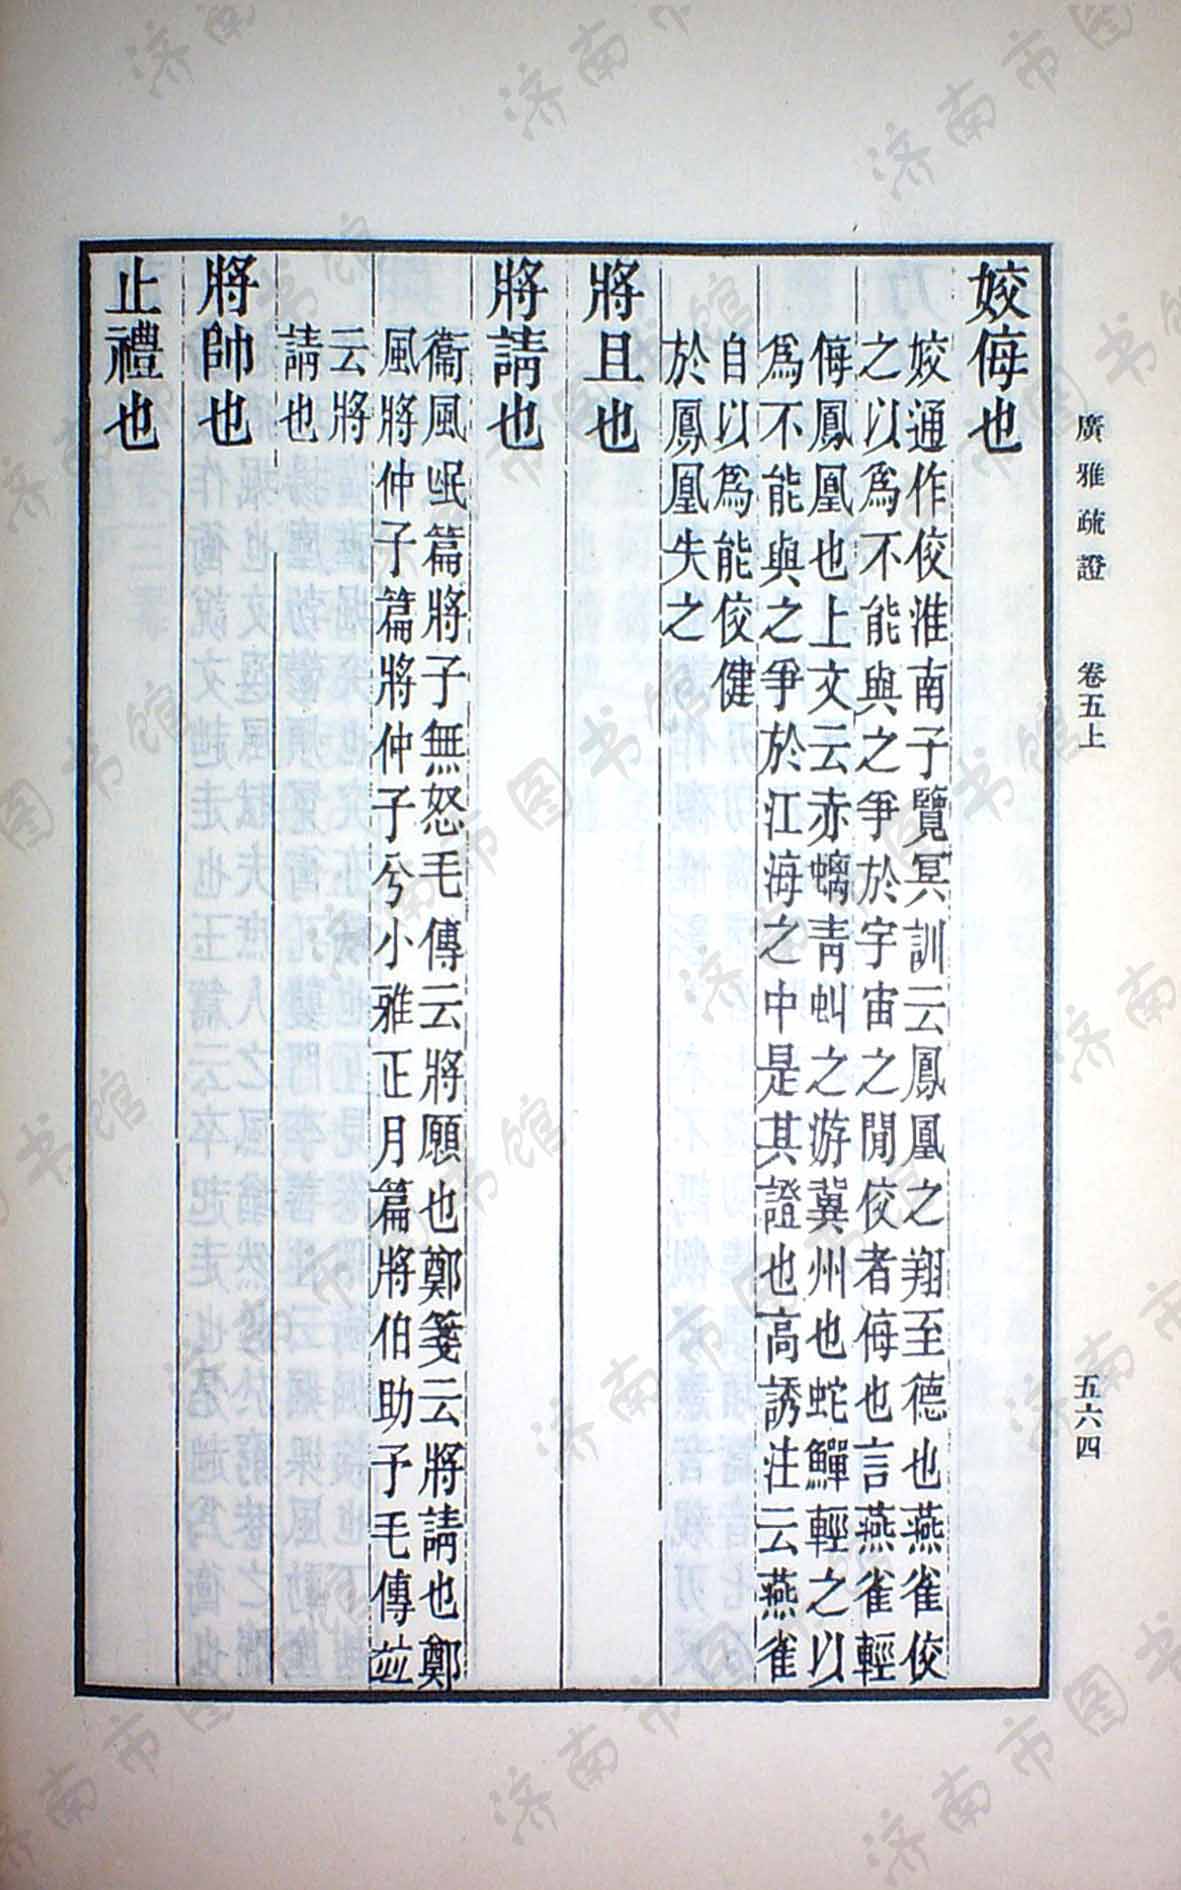 廣雅疏證　卷五上　五六四
姣侮也
姣通作佼淮南子覽冥訓云鳳凰之翔至德也燕雀佼
之以爲不能與之爭於宇宙之閒佼者侮也言燕雀輕
侮鳳凰也上文云赤螭青虯之游冀州也蛇鱓輕之以
爲不能與之爭於江海之中是其證也高誘注云燕雀
自以爲能佼健
於鳳凰失之
將且也
將請也
衞風氓篇將子無怒毛傳云將願也鄭箋云將請也鄭
風將仲子篇將仲子兮小雅正月篇將伯助予毛傳竝
云將
請也
將帥也
止禮也
济南市图书馆